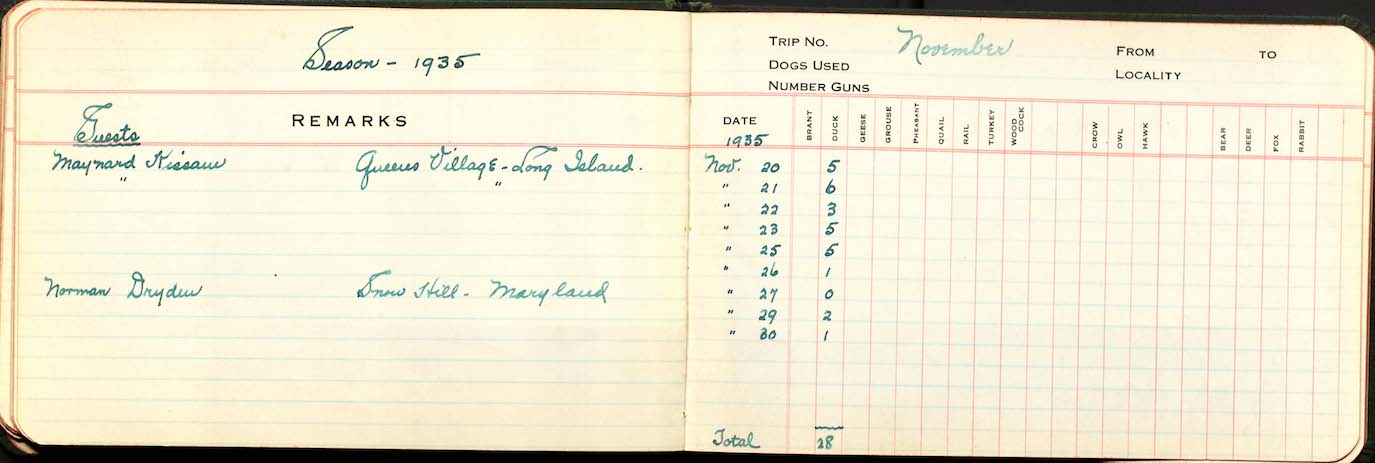 Season - 1935
REMARKS
Guests
Maynard Kissam Queens Village - Long Island.
" "
Norman Dryden Snow Hill - Maryland
TRIP NO. November FROM TO
DOGS USED LOCALITY
NUMBER GUNS
DATE BRANT DUCK GEESE GROUSE PHEASANT QUAIL RAIL TURKEY WOOD COCK CROW OWL HAWK BEAR DEER FOX RABBIT
1935
Nov. 20 5
" 21 6
" 22 3
" 23 5
" 25 5
" 26 1
" 27 0
" 29 2
" 30 1
Total 28